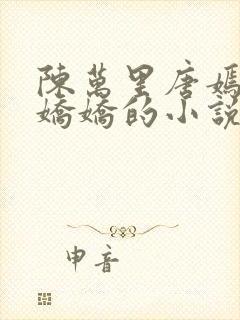 陳萬里唐嫣
嬌嬌的小說
申音